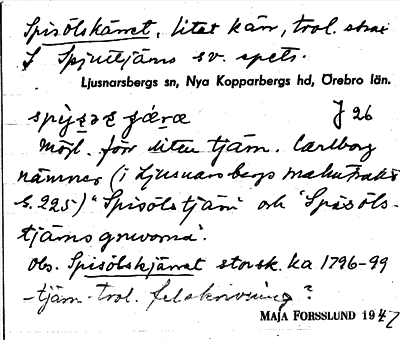 Spisölskärret, litet kärr, trol. strax
S Spjuttjärns sv. spets.
Ljusnarsbergs sn, Nya Kopparbergs hd, Örebro län.
J 26
Möjl. förr liten tjärn. Carlborg
nämner (i Ljusnarsbergs malmtrakt
s. 225) "Spisölstjärn" och "Spisöls-
tjärnsgruvorna".
Obs. Spisölskjärnet storsk. ka 1796-99
-tjärn- trol. felskrivning?
MAJA FORSSLUND 1947